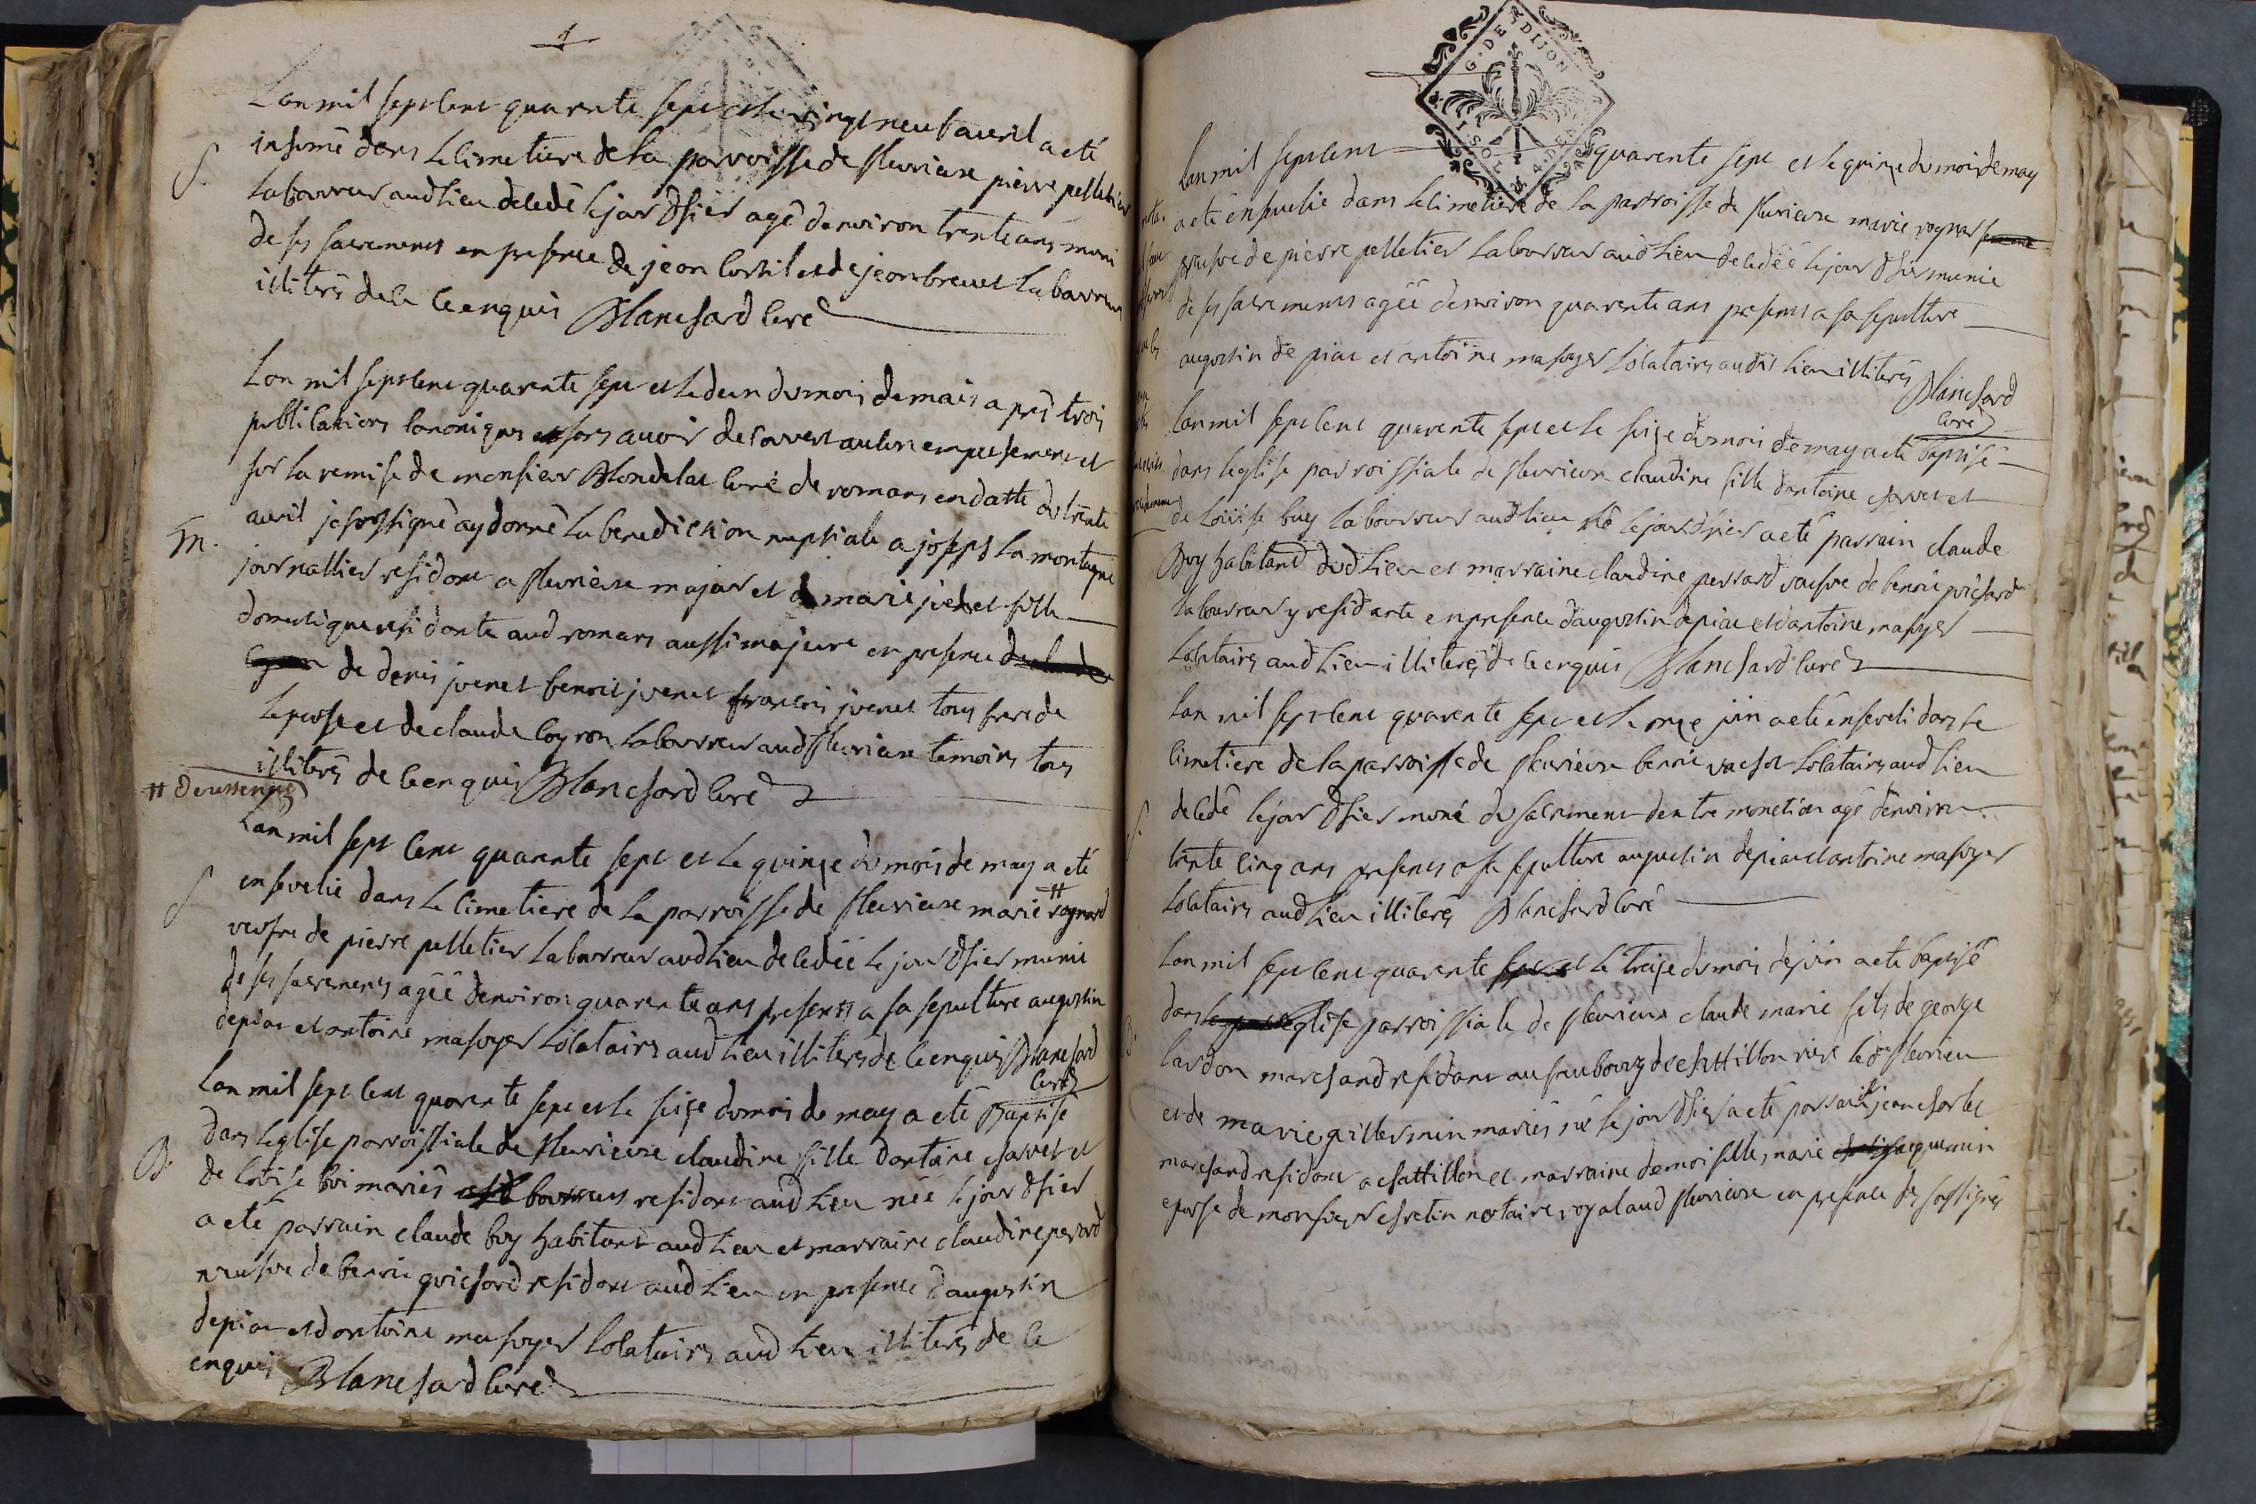 1
Lan mil sept cent quarente sept et le vingt neuf avril a eté
S.
inhumé dans le cimetiere de la parroisse de fleurieux pierre pelletier
laboureur aud lieu decedé le jour d'hier agé denviron trente ans muni
de ses sacrements en presence de jean et de jean brevet laboureurs
illiterés de ce enquis Blanchard curé
Lan mil sept cent quarente sept et le deux du mois de mais aprè trois
publications canoniques et sans avoir decouvert aucun empechement et
sur la remise de monsieur Blondelat curé de romans en datte du trente
avril je soussigné ay donné la benediction nuptiale a joseph la montagne
m.
journallier residant a fleurieux majeur et a marie juenet fille
domestique residante aud romans aussi majeure en presence de claude
de denis juenet benoit juenet francois juenet tous frere de
lepouse et de claude loyron laboureur aud fleurieux temoins tous
illiterés de ce enquis Blanchard curé
# deussepié
Lan mil sept cent quarente sept et le quinze du mois de may a eté
S
ensevelie dans le cimetiere de la parroisse de fleurieux marie # rognard
veufve de pierre pelletier laboureur aud lieu decedéé le jour d'hier munie
de ses sacrements agéé denviron quarente ans presents a sa sepulture augustin
depiar et antoine masoyer locataires aud lieu illiterés de ce enquis Blanchard
curé
Lan mil sept cent quarente sept et le seize du mois de may a eté Baptisé
dans leglise parroissiale de fleurieux claudine fille dantoine charvet et
B.
de Loüise bui mariés laboureurs residant aud lieu néé le jour d'hier
a eté parrain claude buy habitant aud lieu et marraine claudine perrard
veufve de benoit guichard residant aud lieu en presence daugustin
depiar et dantoine masoyer locataires aud lieu illiterés de ce
enquis Blanchard curé
G. DE DIJON
1. SOL 4 DEN.
Lan mil sept cent quarente sept et le quinze du mois de may
a eté ensevelie dans le cimetiere de la parroisse de fleurieux marie rognar femme
veufve de pierre pelletier laboureur aud lieu decedéé le jour d'hier munie
de ses sacrements agéé denviron quarente ans presents a sa sepulture
augustin de piar et antoine masoyer locataires audit lieu illiterés Blanchard
curé
Lan mil sept cent quarente sept et le seize du mois de may a eté baptisé
dans leglise parroissiale de fleurieux claudine fille dantoine charvet et
de Loüise buy laboureurs aud lieu né le jour d'hier a eté parrain claude
Buy habitant dud lieu et marraine claudine perrard veufve de benoit guichard
laboureur y residante en presence daugustin depiar et dantoine masoyer
locataires aud lieu illiterés de ce enquis Blanchard curé
Lan mil sept cent quarente sept et le onze juin a eté enseveli dans le
cimetiere de la parroisse de fleurieux benoit locataires aud lieu
S.
decedé le jour d'hier muné du sacrement dextremonction agé denviron
trente cinq ans presents a sa sepulture augustin depiar et antoine masoyer
locataires aud lieu illiterés Blanchard curé
Lan mil sept cent quarente sept et le treize du mois de juin a eté baptisé
dans leglise parroissiale de fleurieux claude marie fils de george
B.
lardon marchand residant au faubourg de chattillon riere led fleurieu
et de marie guillermin mariés né le jour d'hier a eté parrain jean charles
marchand residant a chattillon et marraine demoiselle marie jaquemin
epouse de monsieur chretin nottaire royal aud fleurieux en presence des soussignés